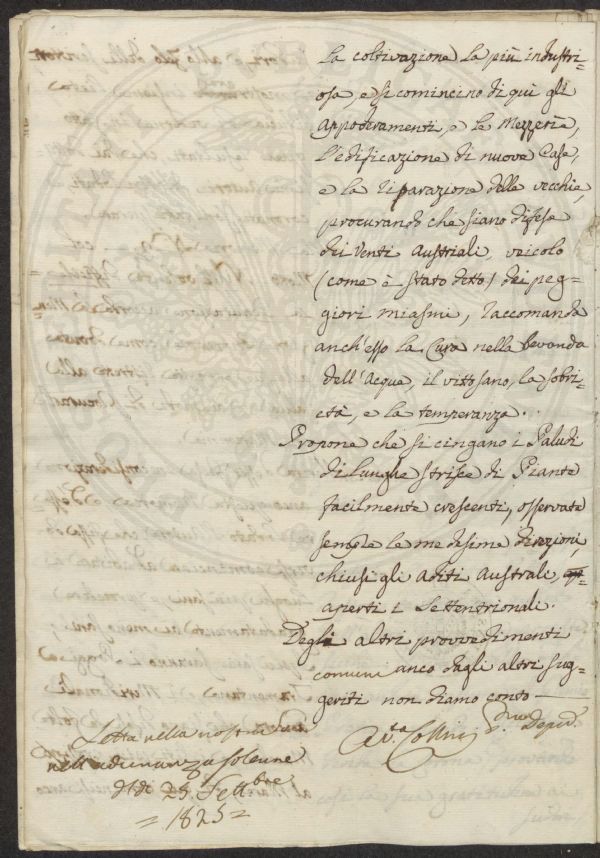 la coltivazione la più industri-
osa, e si comincino di quì gli
Appoderamenti, e le Mezzerìa,
l'edificazione di nuove Case,
e la riparazione delle vecchie,
procurando che siano difese
dei Venti Australi, veicolo
(come è stato detto) dei peg-
giori miasmi, raccomanda
anch'esso la Cura nella bevanda
dell'Acqua, il vitto sano, la sobri-
età, e la temperanza.
Propone che si cingano i Paludi
di lunghe strisce di Piante
facilmente crescenti, osservate
sempre le medesime direzioni,
chiusi gli aditi Australi,
aperti i Settentrionali.
Degli altri provvedimenti
comuni anco dagli altri sug-
geriti non diamo conto
Collini Deput.
Letta nella nostra
nell'adunanza solenne
del dì 25 Settbre
= 1825 =